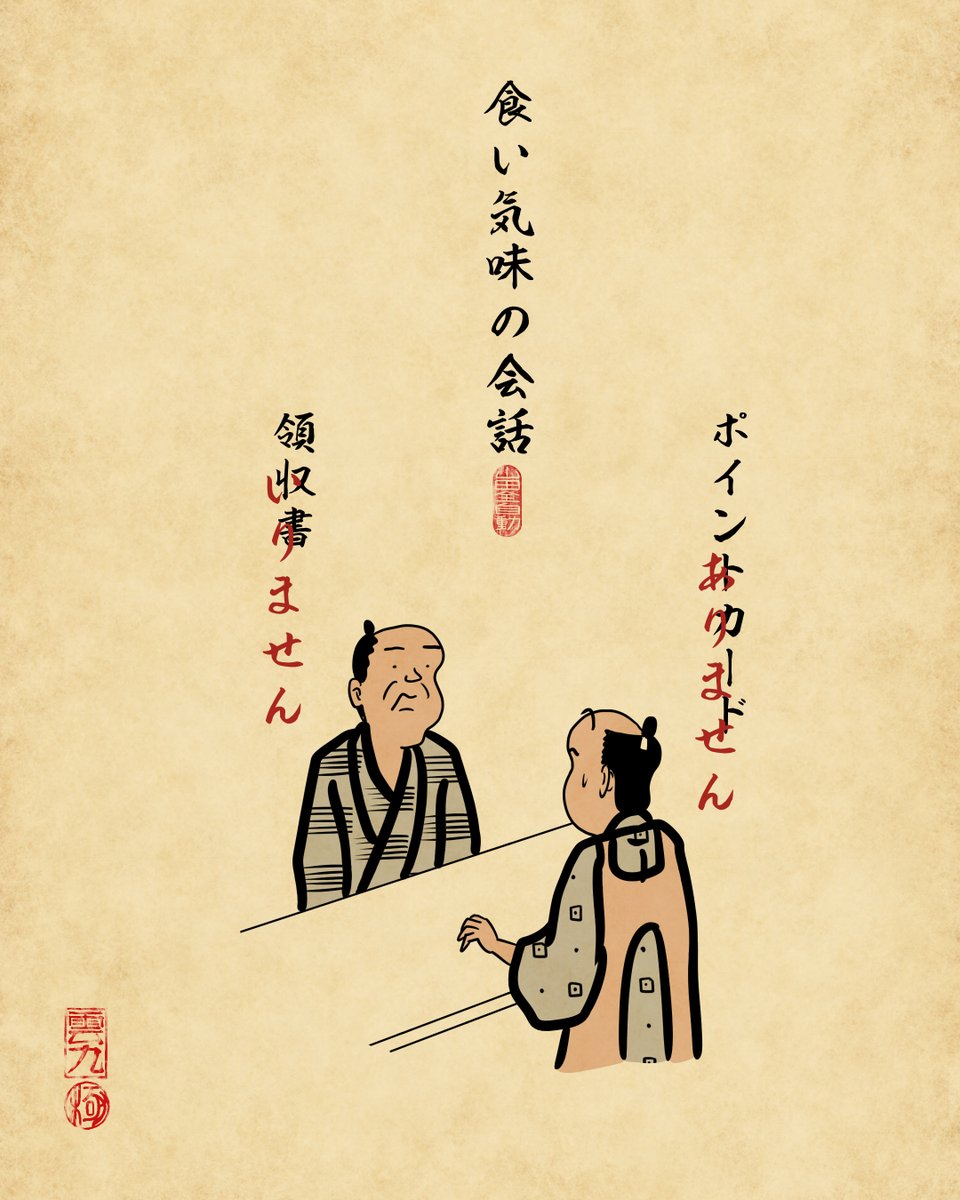 食い気味の会話
山田全自動
ポイントカード
ありません
領収書
いりません